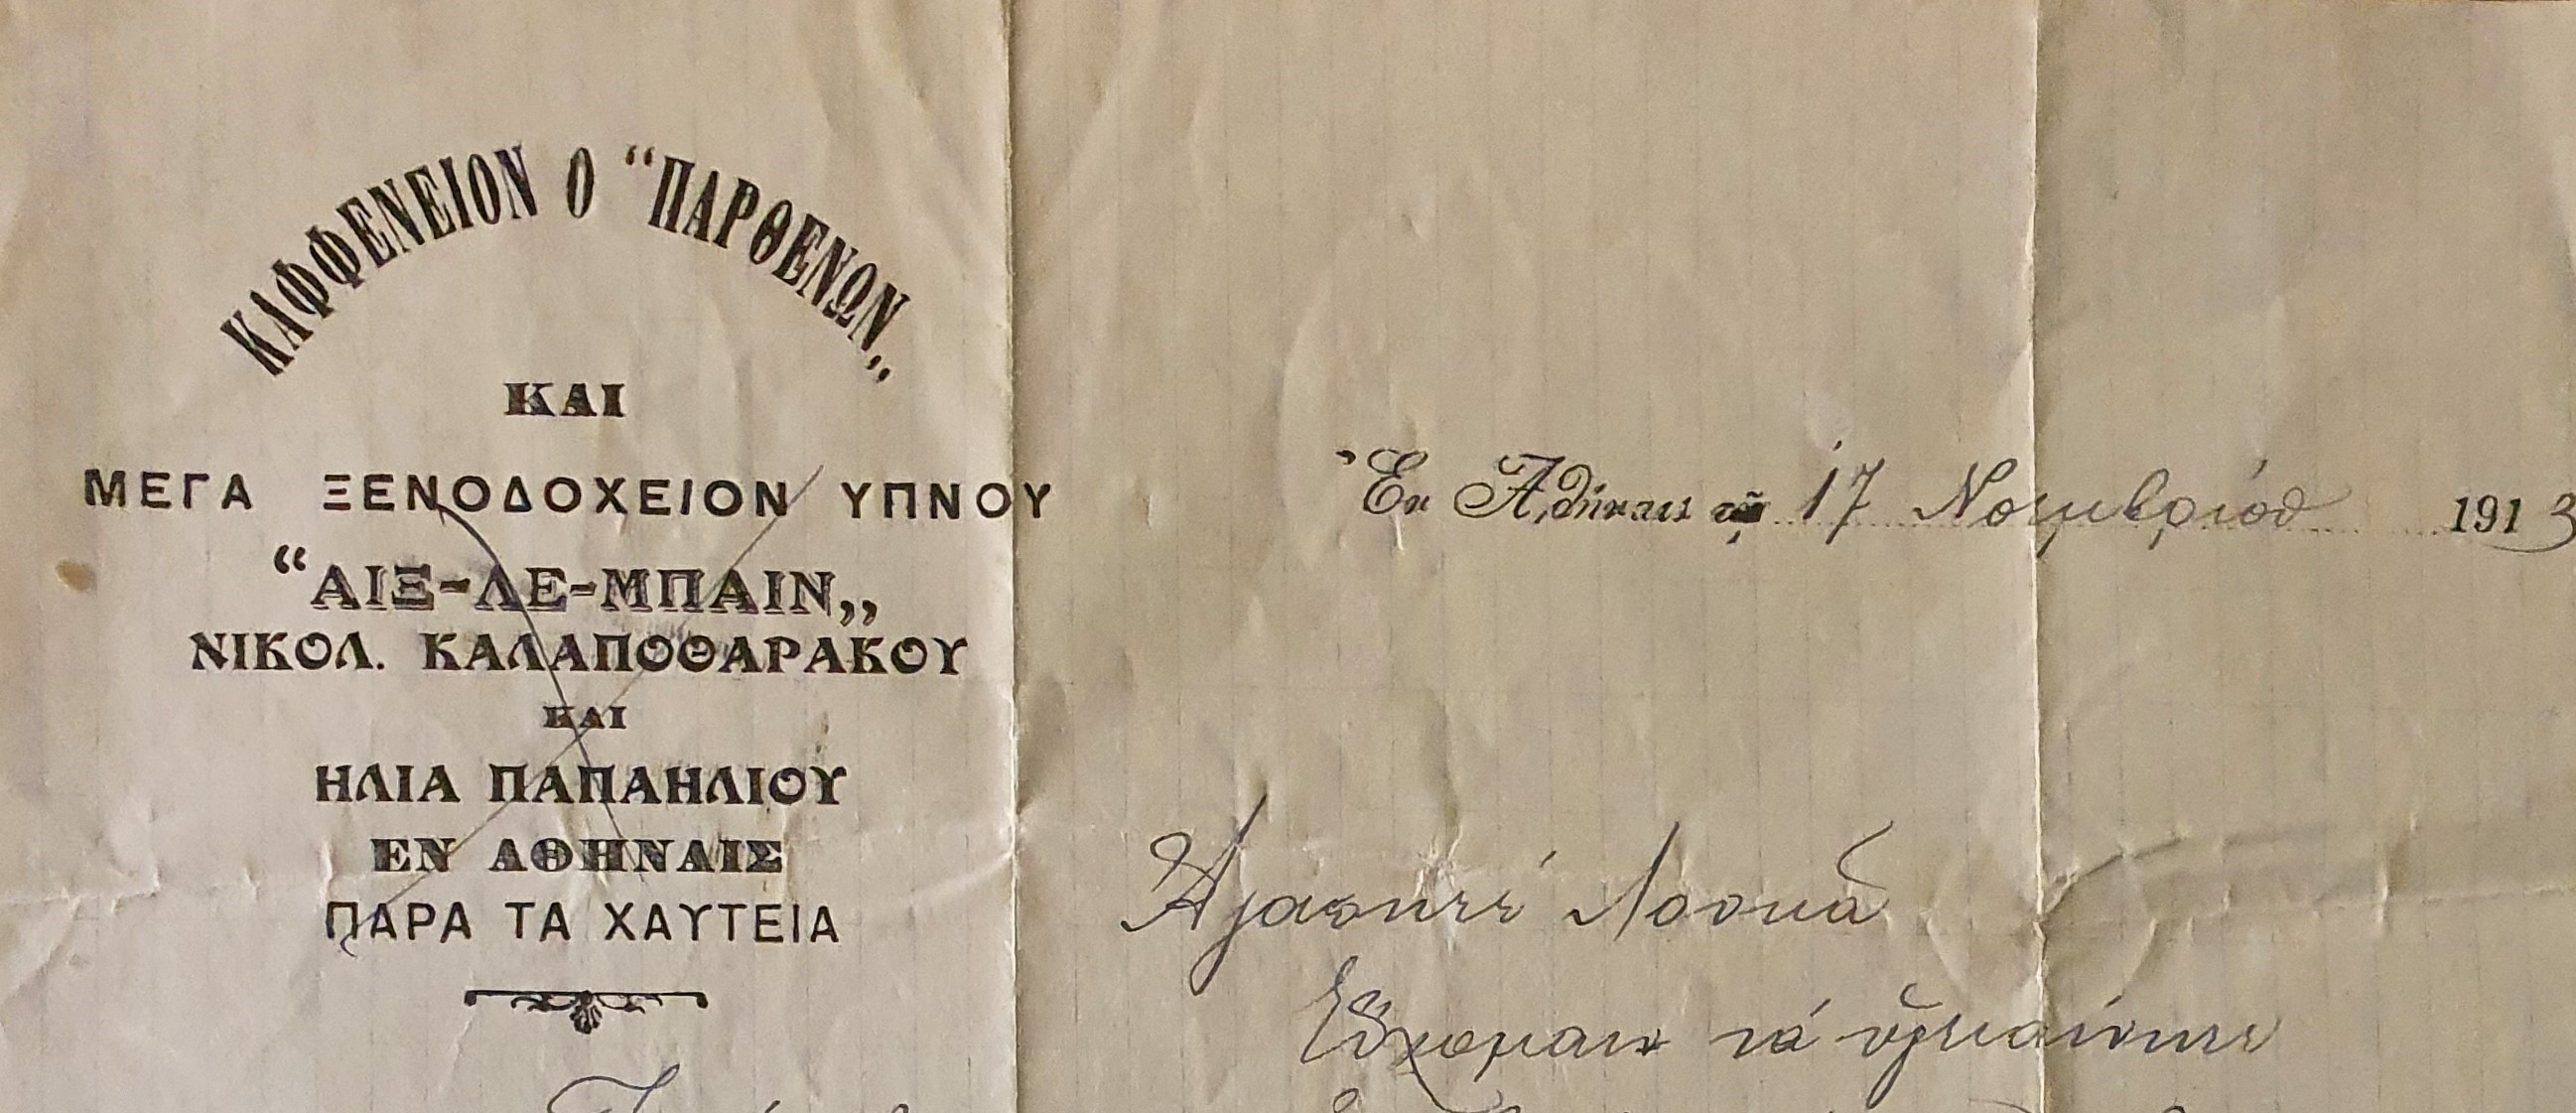 ΚΑΦΦΕΝΕΙΟΝ Ο “ΠΑΡΘΕΝΩΝ„
ΚΑΙ
ΜΕΓΑ ΞΕΝΟΔΟΧΕΙΟΝ ΥΠΝΟΥ
“ΑΙΞ-ΛΕ-ΜΠΑΙΝ„
ΝΙΚΟΛ. ΚΑΛΑΠΟΘΑΡΑΚΟΥ
ΚΑΙ
ΗΛΙΑ ΠΑΠΑΗΛΙΟΥ
ΕΝ ΑΘΗΝΑΙΣ
ΠΑΡΑ ΤΑ ΧΑΥΤΕΙΑ
Ἐν Ἀθήναις τῇ 17 Νοεμβρίου 1913
Ἀγαπητέ Λουκᾶ
Εὔχομαι νά ὑγιαίνητε